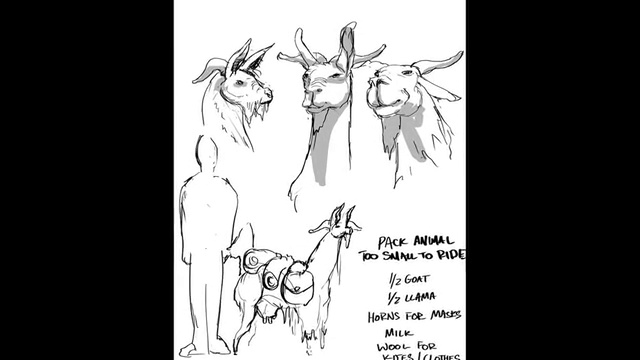 PACK ANIMAL
TOO SMALL TO RIDE
1/2 GOAT
1/2 LLAMA
HORNS FOR MASKS
MILK
WOOL FOR
KITES/CLOTHES